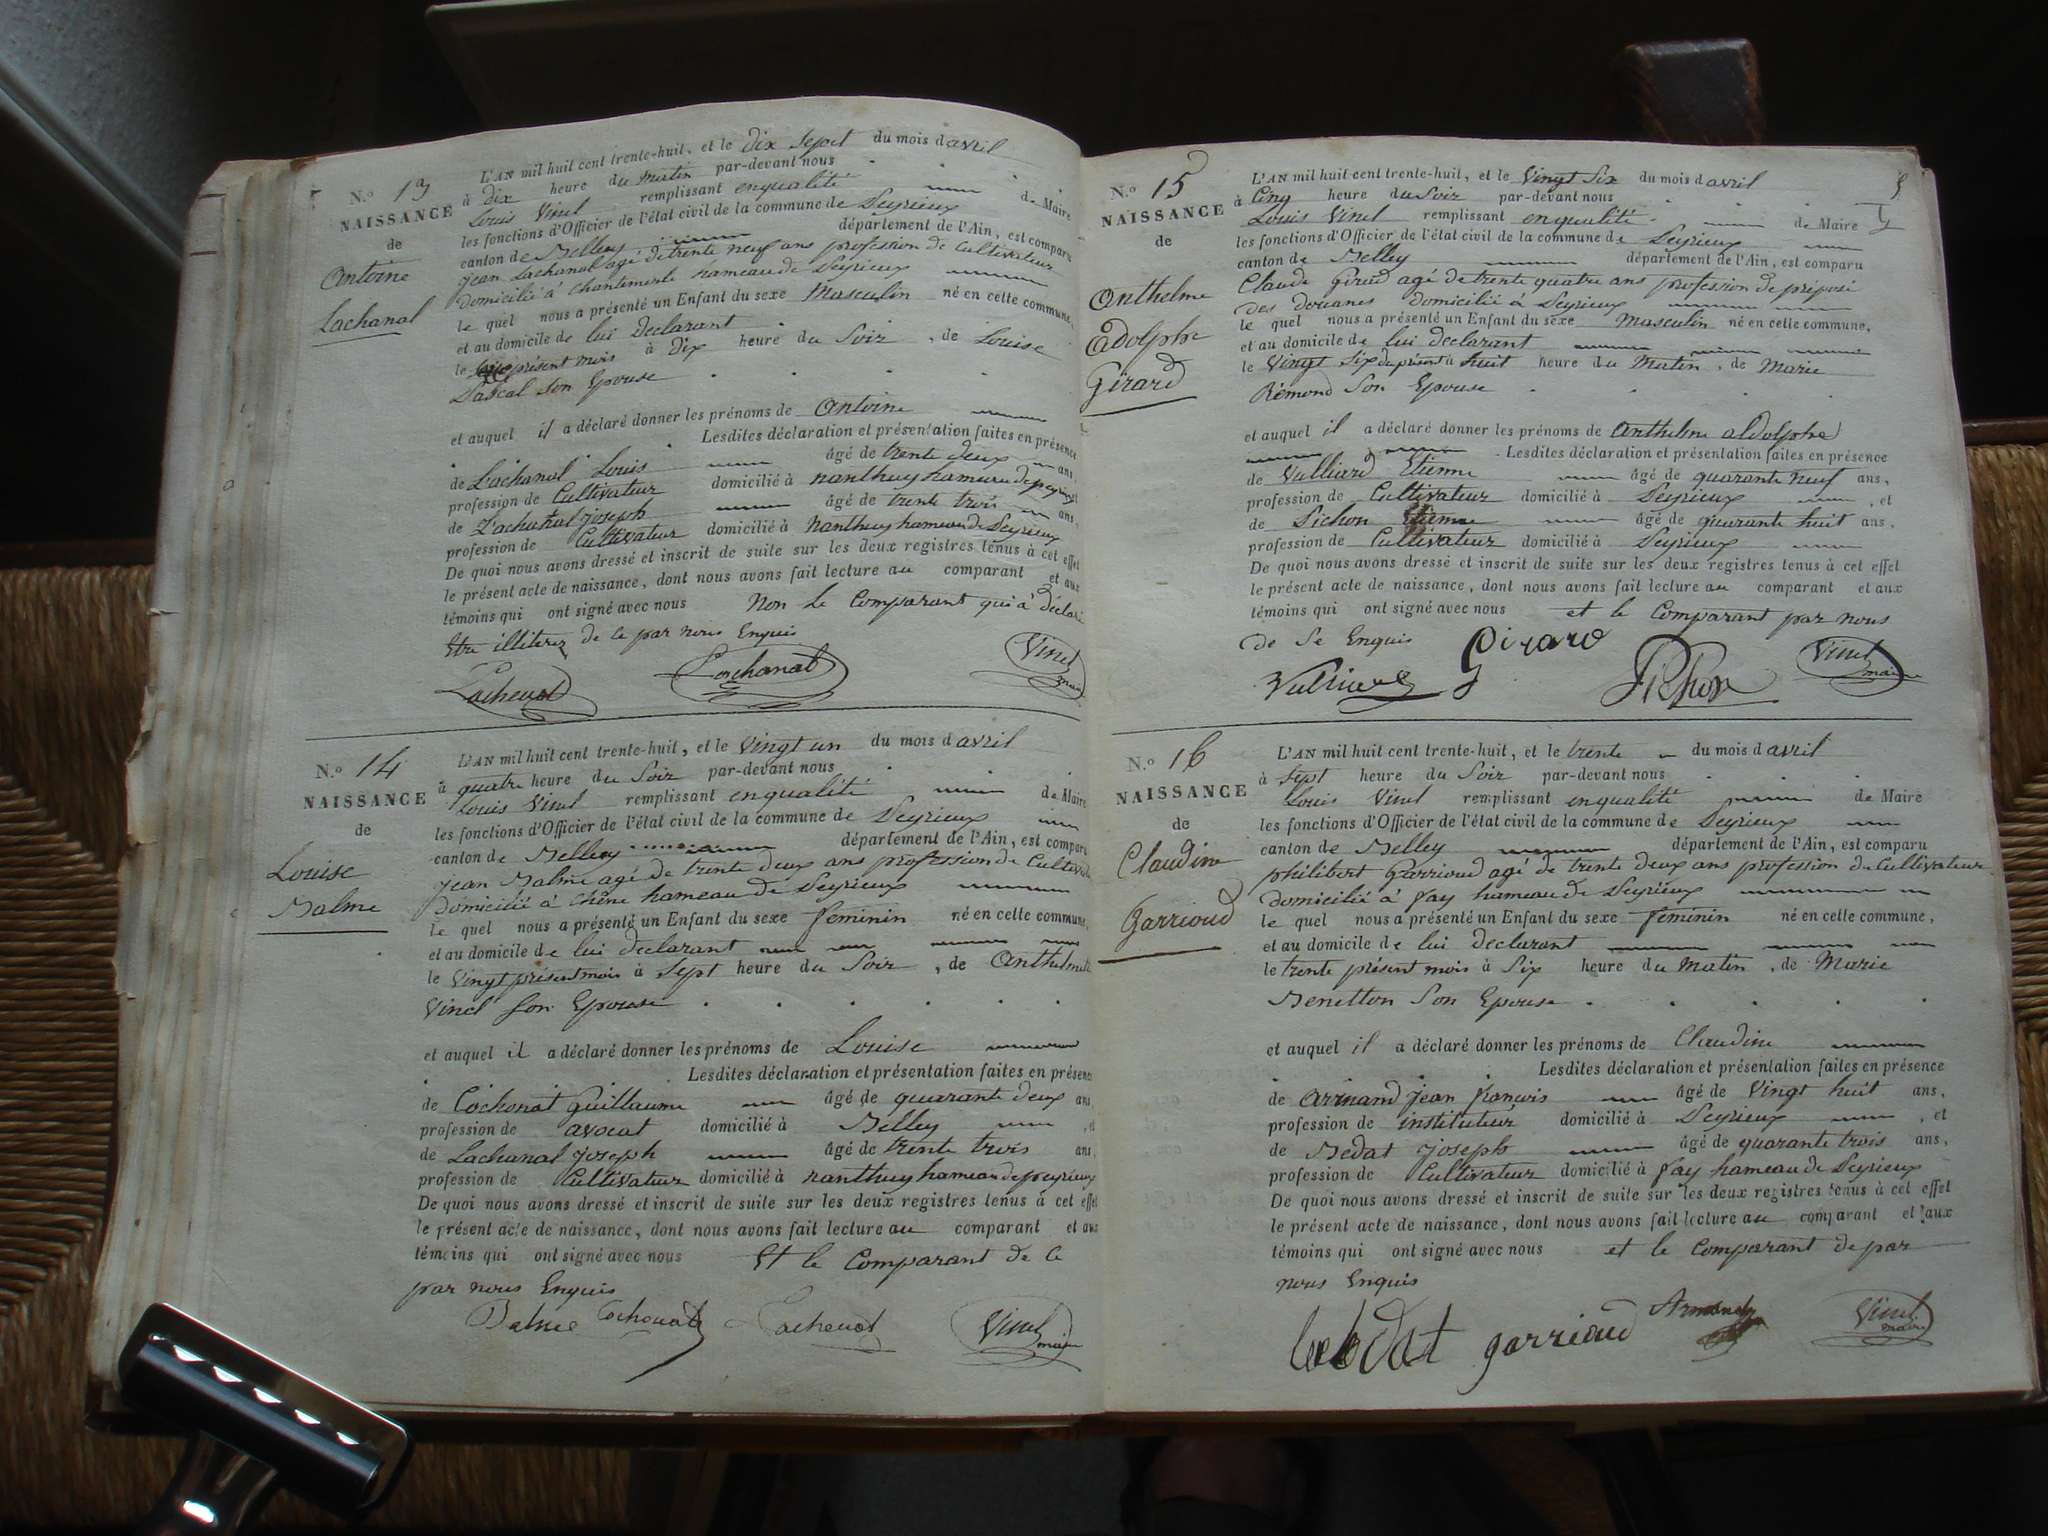 N.º 13
NAISSANCE
de
Antoine
Lachanal
L'AN mil huit cent trente-huit, et le dix Sept du mois d avril
à dix heure du Matin par-devant nous
Louis Vinel remplissant enqualité de Maire
les fonctions d'Officier de l'état civil de la commune de Peyrieux
canton de Belley département de l'Ain, est comparu
jean Lachanal agé de trente neuf ans profession de Cultivateur
domicilié à Chantemerle hameau de Peyrieux
le quel nous a présenté un Enfant du sexe Masculin né en cette commune,
et au domicile de lui declarant
le présent mois à Dix heure du Soir, de Louise
Pascal Son Epouse
et auquel il a déclaré donner les prénoms de Antoine
Lesdites déclaration et présentation faites en présence
de Lachanal Louis âgé de trente deux ans,
profession de Cultivateur domicilié à nanthuy hameau de peyrieux
de Lachanal joseph âgé de trente trois ans,
profession de Cultivateur domicilié à Nanthuy hameau de Peyrieux
De quoi nous avons dressé et inscrit de suite sur les deux registres tenus à cet effet
le présent acte de naissance, dont nous avons fait lecture au comparant et aux
témoins qui ont signé avec nous Non Le Comparant qui a déclaré
Etre illiterez de ce par nous Enquis
Lachenal Lachanal Vinel
maire
N.º 14
NAISSANCE
de
Louise
Balme
L'AN mil huit cent trente-huit, et le Vingt un du mois d avril
à quatre heure du Soir par-devant nous
Louis Vinel remplissant enqualité de Maire
les fonctions d'Officier de l'état civil de la commune de Peyrieux
canton de Belley département de l'Ain, est comparu
jean Balme agé de trente deux ans profession de Cultivate
domicilié à Chêne hameau de Peyrieux
le quel nous a présenté un Enfant du sexe feminin né en cette commune,
et au domicile de lui declarant
le Vingt présent mois à Sept heure du Soir, de Anthelmette
Vinel Son Epouse
et auquel il a déclaré donner les prénoms de Louise
Lesdites déclaration et présentation faites en présence
de Cochonat Guillaume âgé de quarante deux ans,
profession de avocat domicilié à Belley , et
de Lachanal joseph âgé de trente trois ans,
profession de Cultivateur domicilié à nanthuy hameau de peyrieux
De quoi nous avons dressé et inscrit de suite sur les deux registres tenus à cet effet
le présent acte de naissance, dont nous avons fait lecture au comparant et aux
témoins qui ont signé avec nous Et le Comparant de ce
par nous Enquis
Balme Cochonat Lachenal Vinel
maire
N.º 15
NAISSANCE
de
Anthelme
adolphe
Girard
L'AN mil huit cent trente-huit, et le Vingt Six du mois d avril
à Cinq heure du Soir par-devant nous
Louis Vinel remplissant enqualité de Maire
les fonctions d'Officier de l'état civil de la commune de Peyrieux
canton de Belley département de l'Ain, est comparu
Claude Girard agé de trente quatre ans profession de préposé
des douanes domicilié à Peyrieux
le quel nous a présenté un Enfant du sexe masculin né en cette commune,
et au domicile de lui declarant
le Vingt Six du présent à huit heure du Matin, de Marie
Rémond Son Epouse
et auquel il a déclaré donner les prénoms de anthelme adolphe
Lesdites déclaration et présentation faites en présence
de Vulliard Etienne âgé de quarante neuf ans,
profession de Cultivateur domicilié à Peyrieux , et
de Pichon Etienne âgé de quarante huit ans,
profession de Cultivateur domicilié à Peyrieux
De quoi nous avons dressé et inscrit de suite sur les deux registres tenus à cet effet
le présent acte de naissance, dont nous avons fait lecture au comparant et aux
témoins qui ont signé avec nous et le Comparant par nous
de Ce Enquis
Girard
Vulliard Pichon Vinel
maire
N.º 16
NAISSANCE
de
Claudine
Garrioud
L'AN mil huit cent trente-huit, et le trente du mois d avril
à Sept heure du Soir par-devant nous
Louis Vinel remplissant enqualité de Maire
les fonctions d'Officier de l'état civil de la commune de Peyrieux
canton de Belley département de l'Ain, est comparu
philibert Garrioud agé de trente deux ans profession de Cultivateur
domicilié à fay hameau de Peyrieux
le quel nous a présenté un Enfant du sexe feminin né en cette commune,
et au domicile de lui declarant
le trente présent mois à Six heure du Matin, de Marie
Benetton Son Epouse
et auquel il a déclaré donner les prénoms de Claudine
Lesdites déclaration et présentation faites en présence
de armand jean françois âgé de Vingt huit ans,
profession de instituteur domicilié à Peyrieux , et
de Bedat joseph âgé de quarante trois ans,
profession de Cultivateur domicilié à fay hameau de Peyrieux
De quoi nous avons dressé et inscrit de suite sur les deux registres tenus à cet effet
le présent acte de naissance, dont nous avons fait lecture au comparant et aux
témoins qui ont signé avec nous et le Comparant de par
nous Enquis
garrioud Armand Vinel
maire